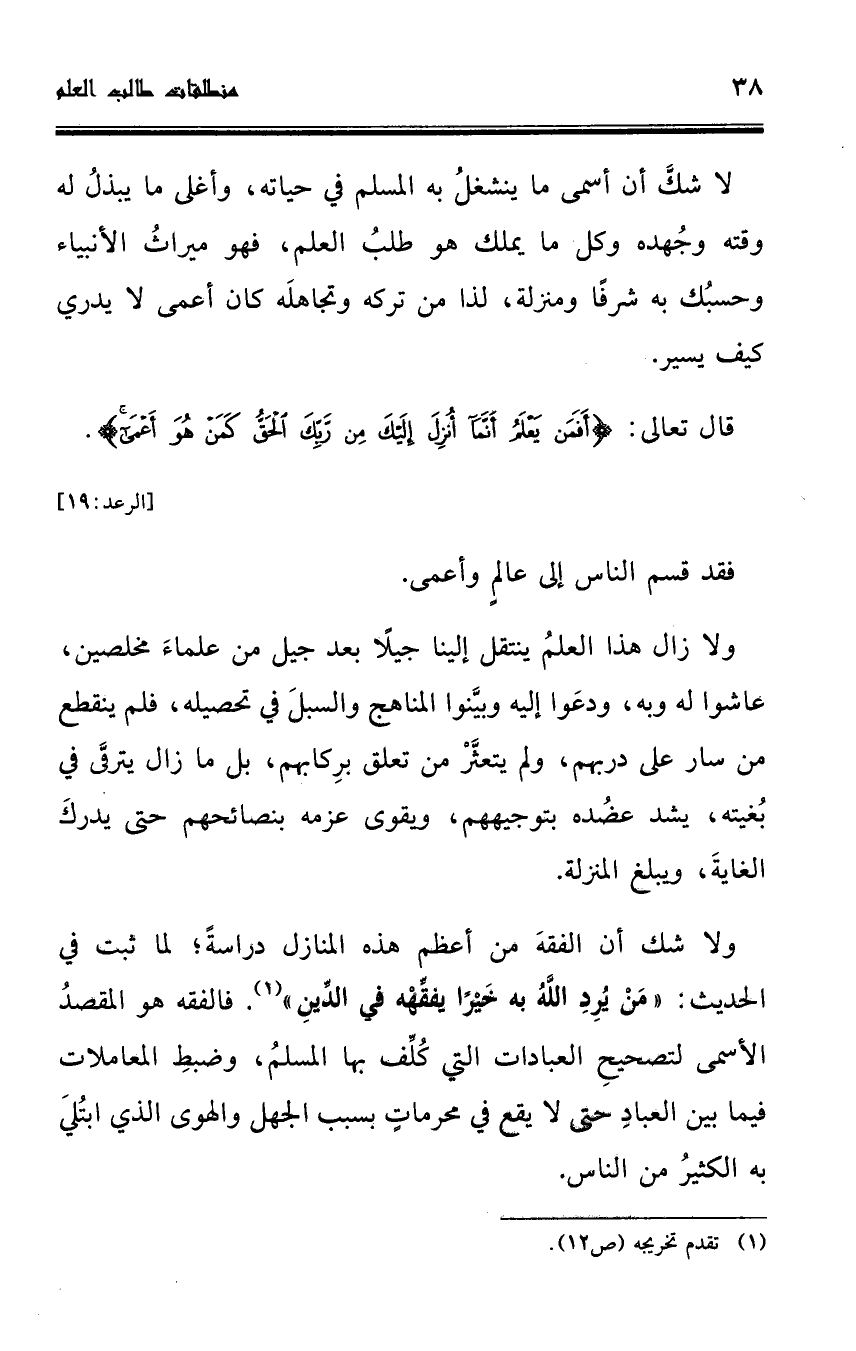 ٣٨ منطلقات طالب العلم
لا شكَّ أن أسمى ما ينشغلُ به المسلم في حياته، وأغلى ما يبذلُ له
وقته وجُهده وكل ما يملك هو طلبُ العلم، فهو ميراثُ الأنبياء
وحسبُك به شرفًا ومنزلة، لذا من تركه وتجاهلَه كان أعمى لا يدري
كيف يسير.
قال تعالى: ﴿أَفَمَن يَعْلَمُ أَنَّمَآ أُنزِلَ إِلَيْكَ مِن رَّبِّكَ ٱلْحَقُّ كَمَنْ هُوَ أَعْمَىٰٓ ۚ﴾.
[الرعد:١٩]
فقد قسم الناس إلى عالمٍ وأعمى.
ولا زال هذا العلمُ ينتقل إلينا جيلًا بعد جيل من علماءَ مخلصين،
عاشوا له وبه، ودعَوا إليه وبيَّنوا المناهج والسبلَ في تحصيله، فلم ينقطع
من سار على دربهم، ولم يتعثَّرْ من تعلق برِكابهم، بل ما زال يترقَّى في
بُغيته، يشد عضُده بتوجيههم، ويقوى عزمه بنصائحهم حتى يدركَ
الغايةَ، ويبلغ المنزلة.
ولا شك أن الفقهَ من أعظم هذه المنازل دراسةً؛ لما ثبت في
الحديث: «مَنْ يُرِدِ اللَّهُ به خَيْرًا يفقِّهْه في الدِّينِ»(١). فالفقه هو المقصدُ
الأسمى لتصحيحِ العبادات التي كُلِّف بها المسلمُ، وضبطِ المعاملات
فيما بين العبادِ حتى لا يقع في محرماتٍ بسبب الجهل والهوى الذي ابتُليَ
به الكثيرُ من الناس.
(١) تقدم تخريجه (ص١٢).